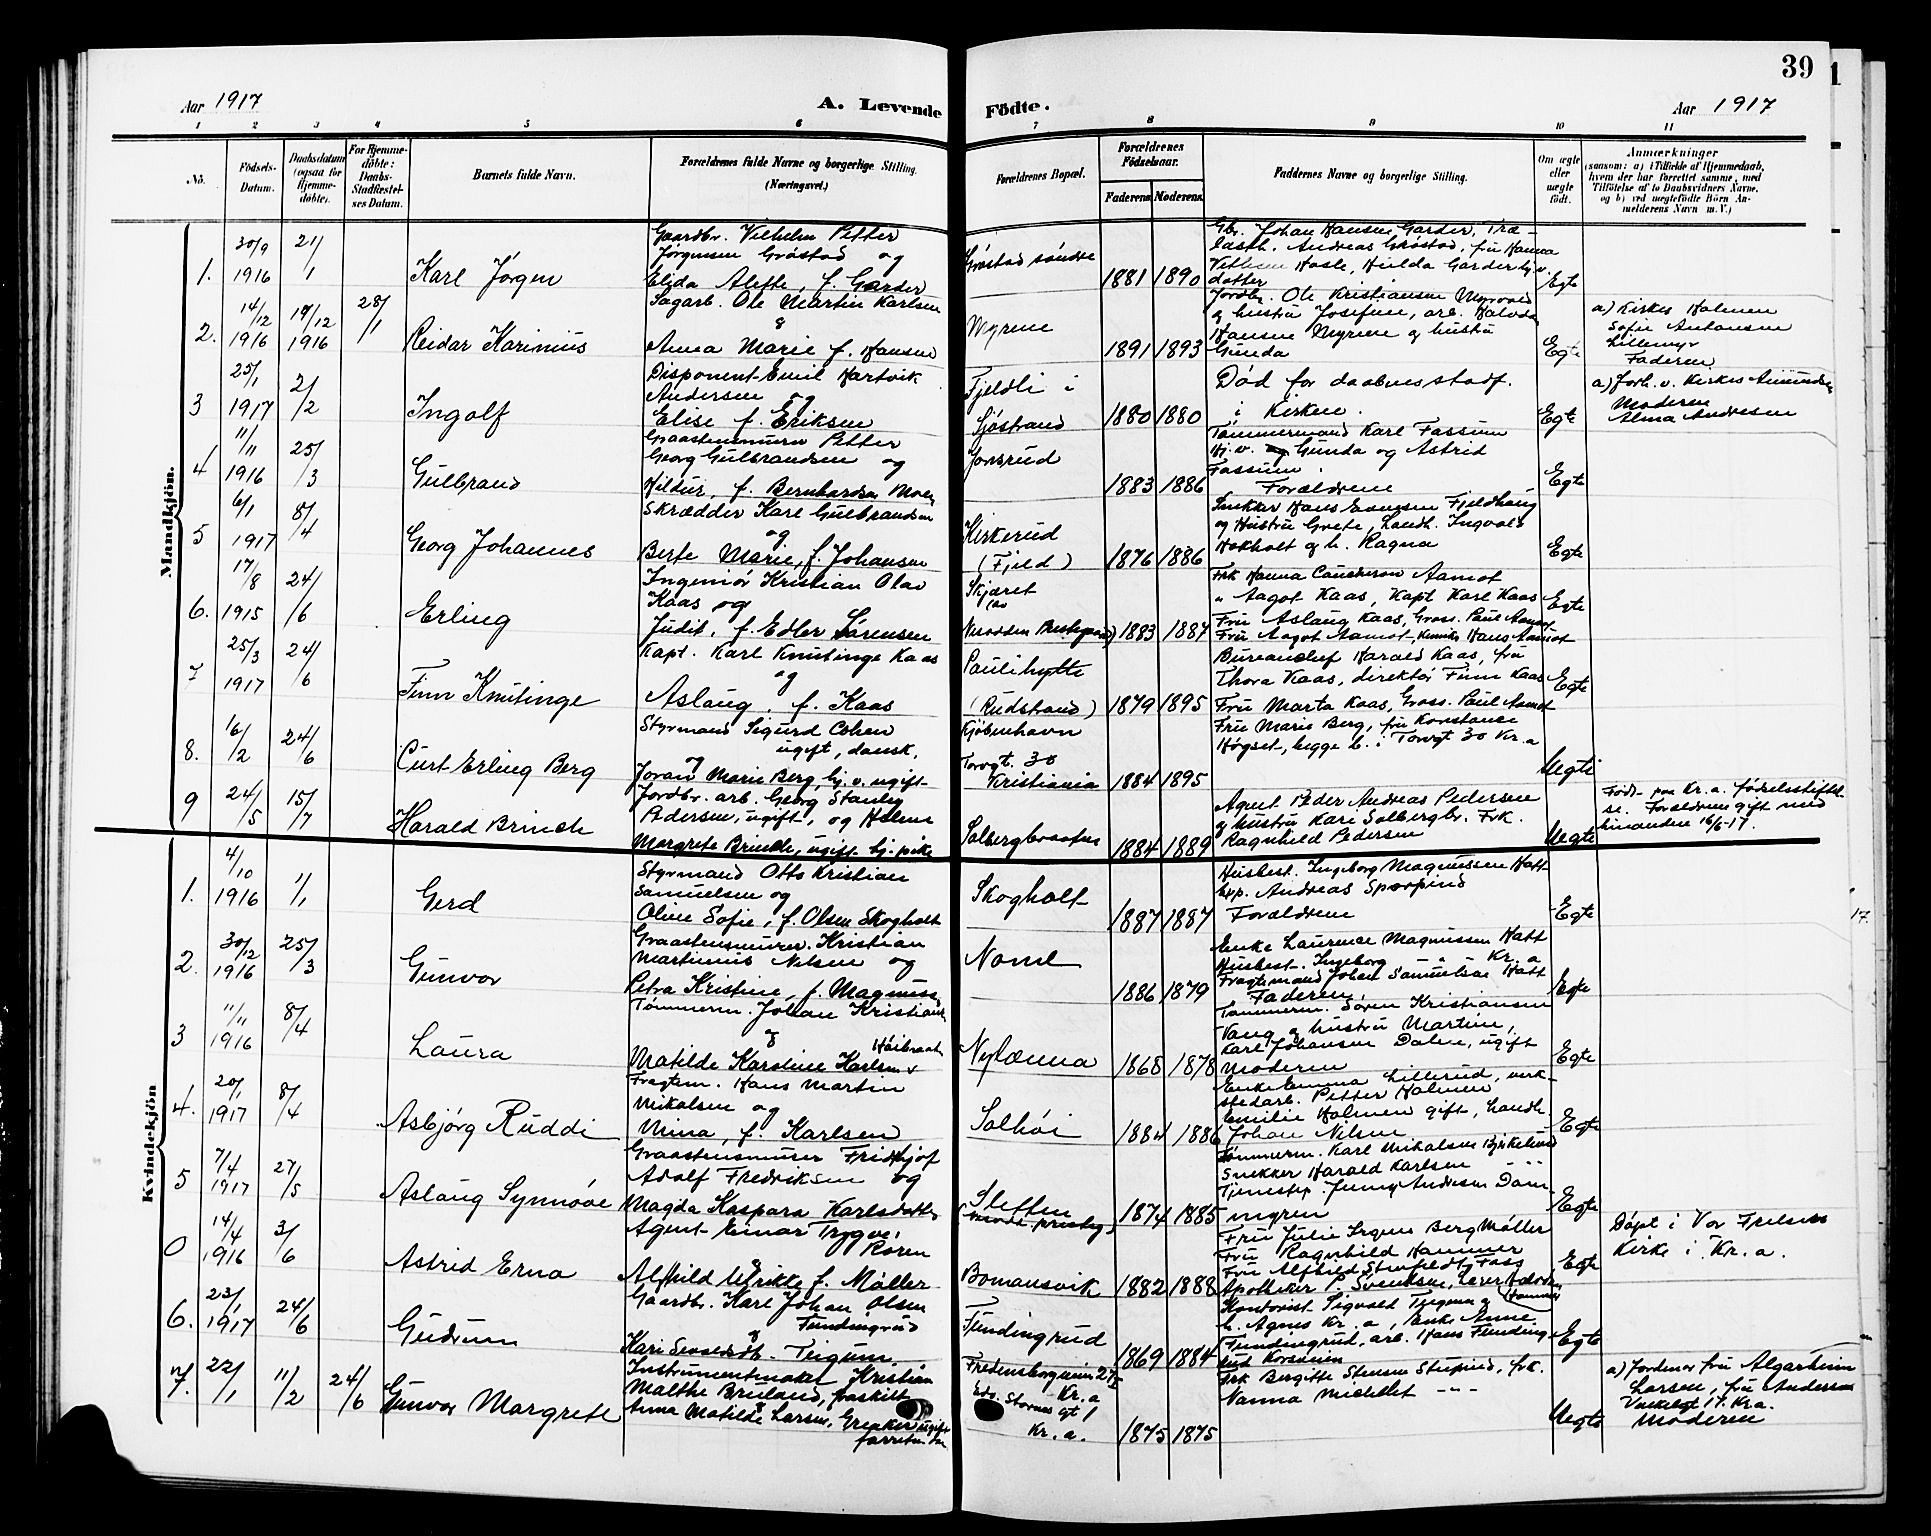 39
Aar 1917
A. Levende
Födte.
Aar 1917
1 2 3 4 5 6 7 8 9 10 11
No.
Födsels-
Datum.
Daabsdatum
(ogsaa for
Hjemme-
döbte).
For Hjemme-
döbte:
Daabs-
Stadfæstel-
ses Datum.
Barnets fulde Navn.
Forældrenes fulde Navne og borgerlige Stilling.
(Næringsvei.)
Forældrenes Bopæl.
Forældrenes
Födselsaar.
Faderens
Moderens
Faddernes Navne og borgerlige Stilling.
Om ægte
eller
uægte
födt.
Anmærkninger
(saasom: a) i Tilfælde af Hjemmedaab,
hvem der har forrettet samme, med
Tilföielse af to Daabsvidners Navne,
og b) ved uægtefödte Börn An-
melderens Navn m. V.)
Mandkjön.
1. 30/9 1916
21/1
Karl Jørgen
Gaardbr. Vilhelm Petter
Jørgensen Grøstad og
Elida Alette, f. Garder
Grøstad søndre
1881 1890
Gbr. Johan Hansen Garder, Træ-
lasth. Andreas Grøstad, fru Hanna
Hasle, Hulda Garder hj. v.
datter
Egte
2. 14/12 1916
19/12 1916
28/1
Reidar Karinius
Sagarb. Ole Martin Karlsen
&
Anna Marie f. Hansen
Myrene
1891 1893
Jordbr. Ole Kristiansen Myrvold
og hustru Josefine, arb. Halvdan
Hansen Myrene og hustru
Gunda
Egte
a) Kirkes Holmen
Sofie Antonsen
Lillemyr
Faderen
3 25/1 1917
2/2
Ingolf
Disponent Emil Hartvik
Andersen og
Elise f. Eriksen
Fjeldli i
Sjøstrand
1880 1880
Død før daabens stadf.
i Kirken.
Egte
a) Jorh. v. Kirkes Amundsen
Moderen
Alma Andresen
4 11/11 1916
25/3
Gulbrand
Graastensmurer Petter
Georg Gulbrandsen og
Hildur, f. Bernhardsen Moen
Jonsrud
1883 1886
Tømmermand Karl Fassum
Hj. v. Gunda og Astrid
Fassum.
Forældrene
Egte
5 6/1 1917
8/4
Georg Johannes
Skrædder Karl Gulbrandsen
og
Berte Marie, f. Johansen
Kirkerud
(Fjeld)
1876 1886
Snekker Hans Evensen Fjeldhaug
og Hustru Grete, Landh. Ingvald
Hokholt og h. Ragna
Egte
6. 17/8 1915
24/6
Erling
Ingeniør Kristian Olav
Kaas og
Judit, f. Edler Sørensen
Skjæret
Nesodden Prestegjeld)
1883 1887
Frk Hanna Aamot
" Aagot Kaas, Kapt Karl Kaas
Fru Aslaug Kaas, Gross. Paul Aamot
Fru Aagot Aamot, Kemiker Hans Aamot
Egte
7 25/3 1917
24/6
Finn Knutinge
Kapt. Karl Knutinge Kaas
og
Aslaug, f. Kaas
Paulihytte
(Rudstrand)
1879 1895
Bureauchef Harald Kaas, fru
Thora Kaas, direktør Finn Kaas
Fru Marta Kaas, Gross. Paul Aamot
Egte
8. 16/2
24/6
Curt Erling Berg
Styrmand Sigurd Cohen
ugift, dansk,
og
Joran Marie Berg, hj. v. ugift
Kjøbenhavn
Torvgt. 30
Kristiania
1884 1895
Fru Marie Berg, fru Konstance
Høgset, begge b. i Torvgt 30 Kr.a
Uegte
9 24/5
15/7
Harald Brinch
Jordbr. arb. Georg Stanley
Pedersen, ugift, og Helene
Margrete Brinch, ugift hj. pike
Solbergbraaten
1884 1889
Agent Peder Andreas Pedersen
og hustru Kari Solbergbr. Frk.
Ragnhild Pedersen
Uegte
Født paa Kr.a. fødselsstiftel-
se. Forældrene gift med
hinanden 16/6-17.
Kvindekjön
1. 4/10 1916
1/1
Gerd
Styrmand Otto Kristian
Samuelsen og
Oline Sofie, f. Olsen Skogholt
Skogholt
1887 1887
Husbest. Ingeborg Magnussen Hatt
Exp. Andreas Sporpind
Forældrene
Egte
17.
2. 30/12 1916
25/3
Gunvor
Graastensmurer Kristian
Martinius Nilsen og
Petra Kristine, f. Magnuss.
Nome
1886 1879
Enke Laurence Magnussen Hatt
Husbest. Ingeborg — " — Kr. a
Fragtemand Johan Samuelsen Hatt
Faderen
Egte
3 11/11 1916
8/4
Laura
Tømmerm. Johan Kristians.
og Høibraaten
Matilde Karoline Karlsen
Nylænna
1868 1878
Tømmerm. Søren Kristiansen
Vang og hustru Martine,
Karl Johansen Dalen, ugift
Moderen
Egte
4. 20/1 1917
8/4
Asbjørg Ruddi
Fragtem. Hans Martin
Nikolsen og
Nina, f. Karlsen
Solhøi
1884 1886
Enke Emma Lillerud, verk-
stedarb. Petter Holmen
Emilie Holmen gift, Landh.
Johan Nilsen
Egte
5 7/4 1917
27/5
Aslaug Synnøve
Graastensmurer Fridtjof
Adolf Fredriksen og
Magda Kaspara Karlsdatter
Sletten
1874 1885
Tømmerm. Karl Mikalsen Bjerkelund
Snekker Harald Karlsen
Tjenestep. Jenny Andresen Dam-
myren
Egte
0 14/4 1916
3/6
Astrid Erna
Agent Einar Trygve
Roren
Alfhild Ulrikke f. Møller
Bomansvik
1882 1888
Fru Julie Berg Møller
Fru Ragnhild Hammer
Fru Alfhild Foss
Apotheker P. Svendsen,
Hammer
Egte
Døpt i Vor Frelsers
Kirke i Kr. a.
6. 23/1 1917
24/6
Gudrun
Gaardbr. Karl Johan Olsen
Fundingrud
&
Kari
Fundingrud
1869 1884
Kontorist Sigvald Tergum og
h. Agnes Kr. a, Enke Anne
Fundingrud, arb. Hans Funding-
rud
Egte
7. 22/1
11/2
24/6
Gunvor Margrete
Instrumentmaker Kristian
Malthe Bruland, fraskilt
&
Anna Matilde Larsen, ugift
Fredensborgveien 27
Kr. a
Edv. Storms gt 1
Kr. a.
1875 1875
Frk Bergitte Stensen Stupind, frk.
Nanna Michelet - - -
Uegte
a) Jordmor fru Algarheim
Larsen, fru Anderson
Kr.a.
Moderen